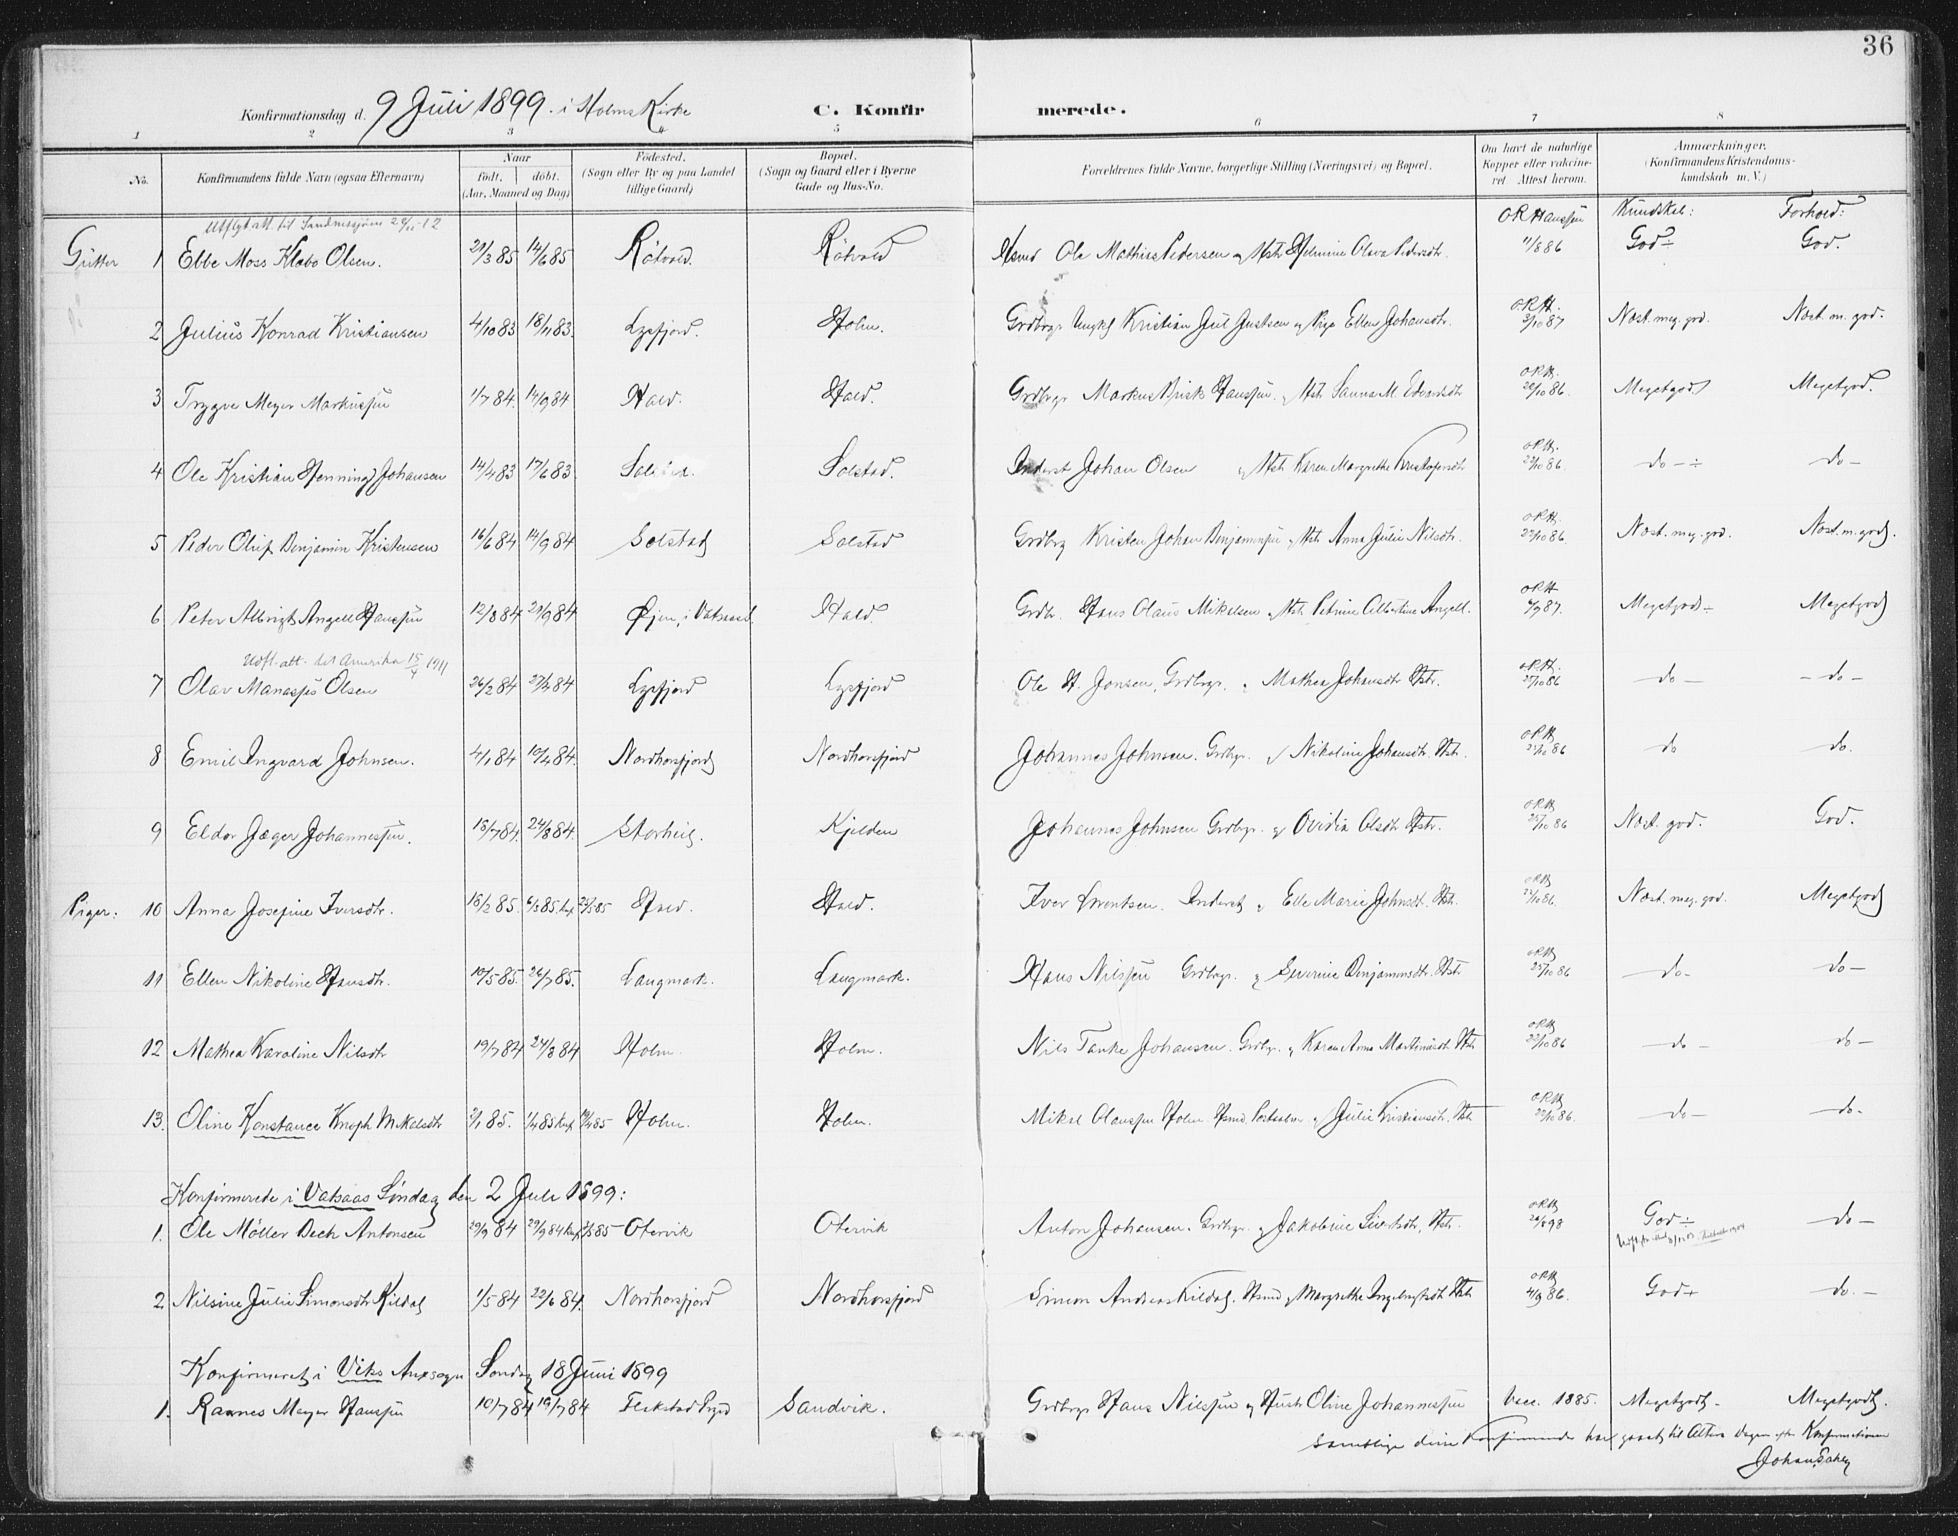 36
Konfirmationsdag d. 9 Juli 1899. i Holms Kirke C. Konfir merede.
1 2 3 4 5 6 7 8
No.
Konfirmandens fulde Navn (ogsaa Efternavn)
Naar
født. døbt.
(Aar, Maaned og Dag)
Fødested.
(Sogn eller By og paa Landet
tillige Gaard)
Bopæl.
(Sogn og Gaard eller i Byerne
Gade og Hus-No.
Forældrenes fulde Navne, borgerlige Stilling (Næringsvei) og Bopæl.
Om havt de naturlige
Kopper eller vakcine-
ret Attest herom.
Anmærkninger.
(Konfirmandens Kristendoms-
kundskab m. V.)
O R Hanssen Kundskab: Forhold:
Gutter 1 Ebbe Moss Klæbo Olsen. 21/3 85 14/6 85 Røtvold. Røtvold Hsmd Ole Mathias Pedersen og Hstr Helmine Olava Pedersdtr. 11/8 86 God ÷ God.
2 Julius Konrad Kristiansen 4/10 83 18/11 83. Lysfjord. Holm. Grdbrgr Ungkl Kristian Jul Justsen og Pige Ellen Johansdtr. O.R.H. 3/10 87 Næst. meg. god. Næst. m. god.
3 Trygve Meyer Markussen 1/7 84. 14/9 84 Hald. Hald. Grdbrgr Markus Brisk Hanssen og Hstr Sanna M. Edvardsdtr O.R.H. 22/10 86. Megetgod Megetgod.
4 Ole Kristian Henning Johansen 14/4 83 17/6 83. Solstad. Solstad. Inderst Johan Olsen og Hstr Karen Margrethe Kristofersdtr O.R.H. 22/10 86. do - ÷ do -
5 Peder Oluf Benjamin Kristensen 16/6 84 14/9 84 Solstad Solstad Grdbrg Kristen Johan Benjaminsen og Hstr Anna Julie Nilsdtr. O.R.H. 22/10 86 Næst. meg. god. Næst. m. god.
6 Peter Albrigt Angell Hanssen 12/8 84 21/9 84 Øjen, i Vatsaas. Hald. Grdbr. Hans Olaus Mikelsen og Hstr. Petrine Albertine Angell. O.R.H. 4/9 87. Megetgod - Megetgod
Udfl. att. til Amerika 15/4 1911
7 Olav Manasses Olsen 26/2 84 27/4 84 Lysfjord Lysfjord Ole H. Jonsen, Grdbrgr. og Mathea Johansdtr Hstr. O.R.H. 25/10 86 do - - do -
8 Emil Ingvard Johnsen. 4/1 84 10/4 84. Nordhorsfjord Nordhorsfjord Johannes Johnsen. Grdbrgr. og Nikoline Johansdtr. Hstr. O.R.H. 25/10 86 do do.
9 Eldor Jæger Johannessen. 18/7 84. 24/8 84. Storheil. Kjelden Johannes Johnsen Grdbrgr. og Ovidia Olsdtr Hstr. O.R.H. 25/10 86 Næst. god. God.
Piger: 10 Anna Josefine Iversdtr. 18/2 85. Hald. Hald. Iver Lorentsen. Inderst og Elle Marie Johnsdtr. Hstr. O.R.H. 22/10 86. Næst. meg. god. Megetgod
11 Ellen Nikoline Hansdtr. 10/5 85. 26/7 85. Langmark. Langmark. Hans Nilssen Grdbrgr. og Severine Benjaminsdtr. Hstr O.R.H. 25/10 86 do - do -
12 Mathea Karoline Nilsdtr 19/7 84 24/8 84 Holm. Holm. Nils Tanke Johansen. Grdbgr. og Karen Anna Martinusdtr Hstr O.R.H. 22/10 86 do - do -
13. Oline Konstance Knoph Mikalsdtr 2/1 85. Holm. Holm. Mikel Olaussen Holm Hsmd. og Julie Kristiansdtr. Hstr O.R.H. 22/10 86. do - do -
Konfirmerede i Vatsaas Søndag den 2 Juli 1899:
1. Ole Møller Bech Antonsen 20/9 84 Otervik Otervik Anton Johansen. Grdbrgr. og Jakobine Sivertsdtr, Hstr. O.R.H. God ÷ do -
2. Nilsine Julie Simonsdtr Kildal 1/5 84 22/6 84. Nordhorsfjord Nordhorsfjord Simon Andreas Kildal. Hsmd og Margrethe Ingebrigtsdtr Hstr O.R.H. 4/9 86. God + do. -
Konfirmeret i Viks Anxsogn Søndag 18 Juni 1899
1. Ragnes Meyer Hanssen 10/7 84 19/7 84 Sandvik. Grdbrgr Hans Nilssen og Hustr Oline Johannessen Vacc. 1885. Megetgodt - Megetgodt.
Samtlige disse Konfirmander har gaaet til Alters Dagen efter Konfirmationen